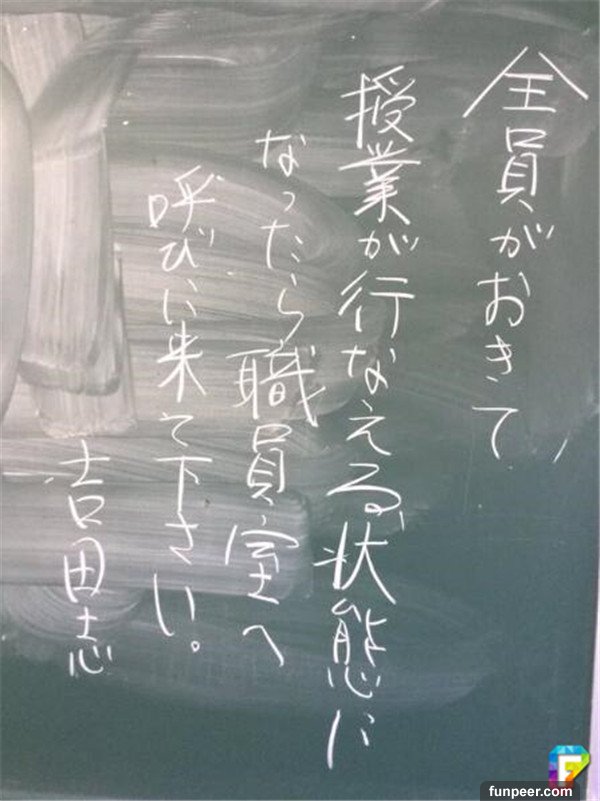 全員がおきて
授業が行なえる状態に
なったら職員室へ
呼びに来て下さい。
吉田志
funpeer.com